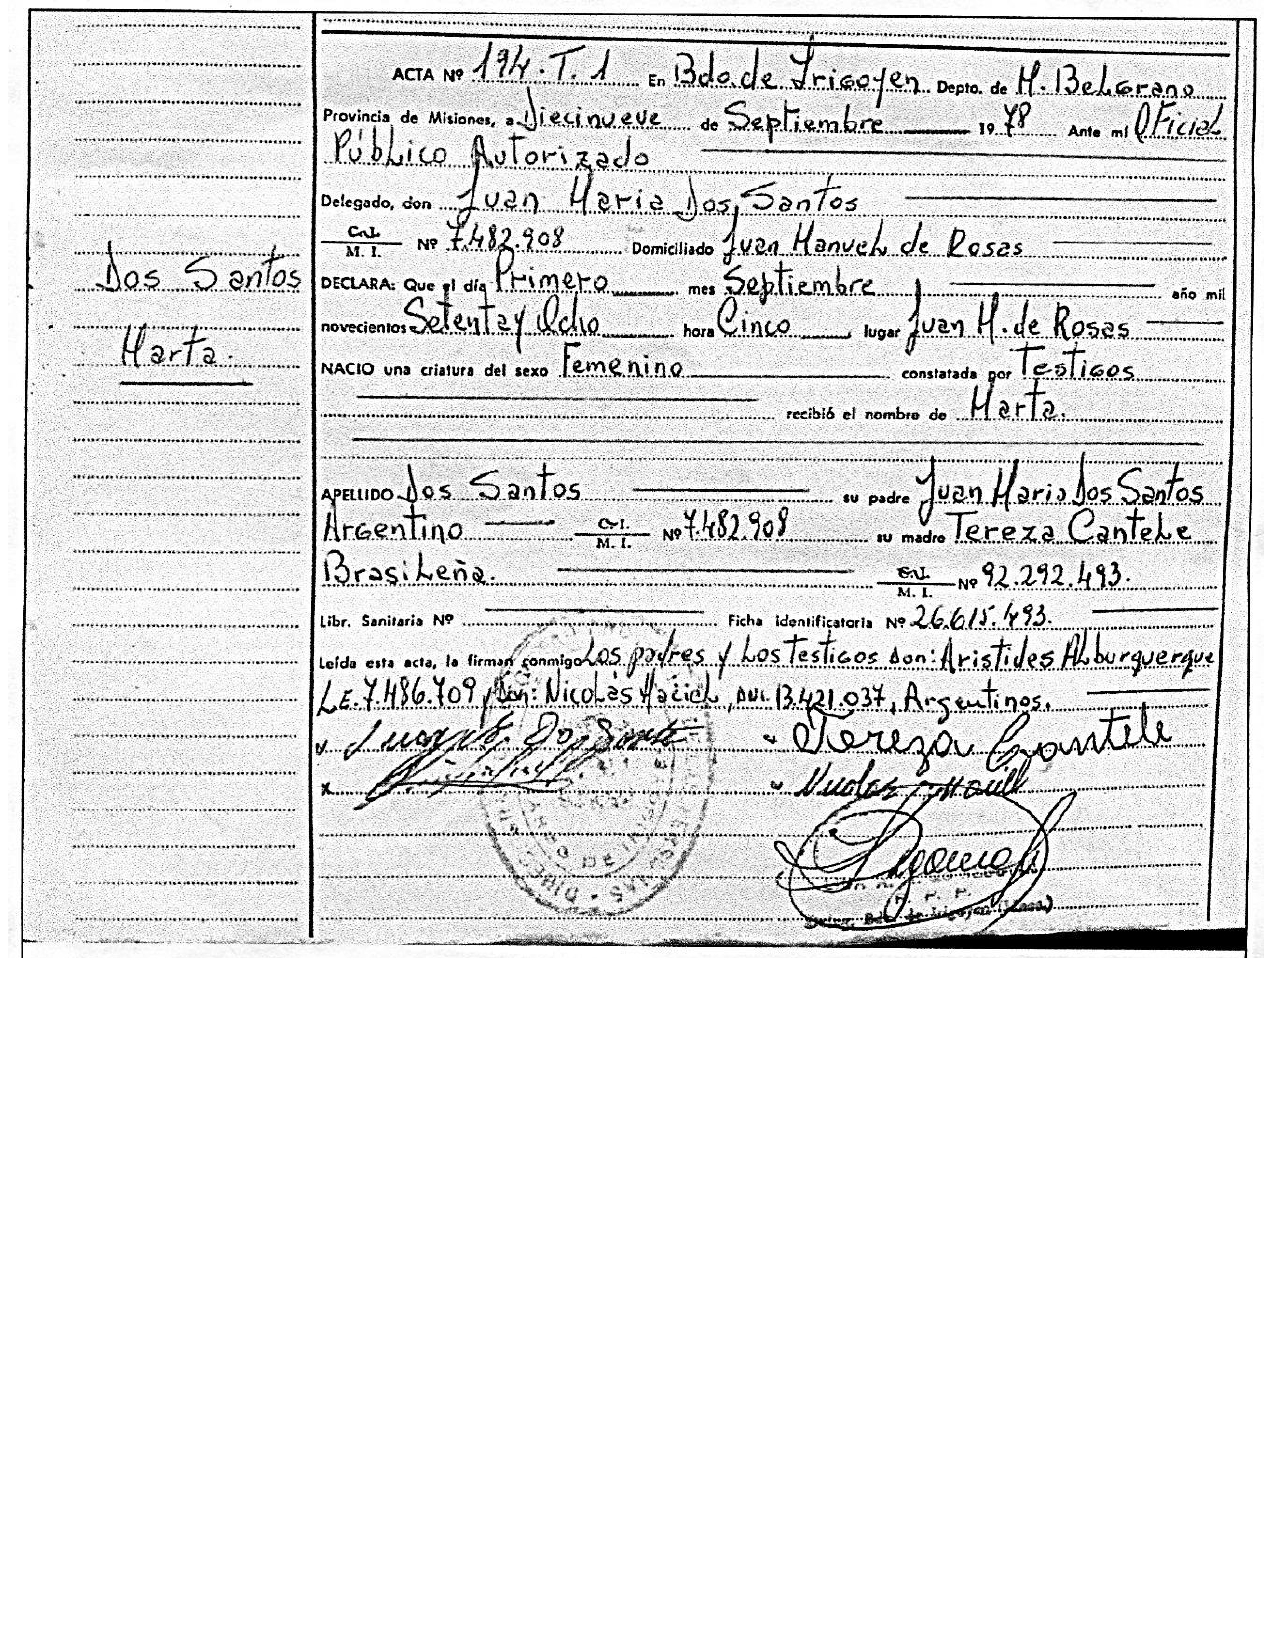 ACTA Nº 194.T.1 En Bdo.de Irigoyen Depto. de M. Belgrano
Provincia de Misiones, a Diecinueve de Septiembre 1978 Ante mí Oficial
Público Autorizado
Delegado, don Juan Maria Dos Santos
C.I. / M. I. Nº 7.482.908 Domiciliado Juan Manuel de Rosas
Dos Santos
DECLARA: Que el día Primero mes Septiembre año mil
novecientos Setenta y Ocho hora Cinco, lugar Juan M. de Rosas
Marta.
NACIO una criatura del sexo Femenino constatada por Testigos
recibió el nombre de Marta.
APELLIDO Dos Santos su padre Juan Maria Dos Santos
Argentino C.I. / M. I. Nº 7.482.908 su madre Tereza Cantele
Brasileña. C.I. / M. I. Nº 92.292.493.
Libr. Sanitaria Nº Ficha Identificatoria Nº 26.615.493.
Leída esta acta, la firman conmigo Los padres y Los Testigos don: Aristides Alburguerque
LE.7.486.709, Don: Nicolás Maciel, DNI. 13.421.037, Argentinos.
Tereza Cantele